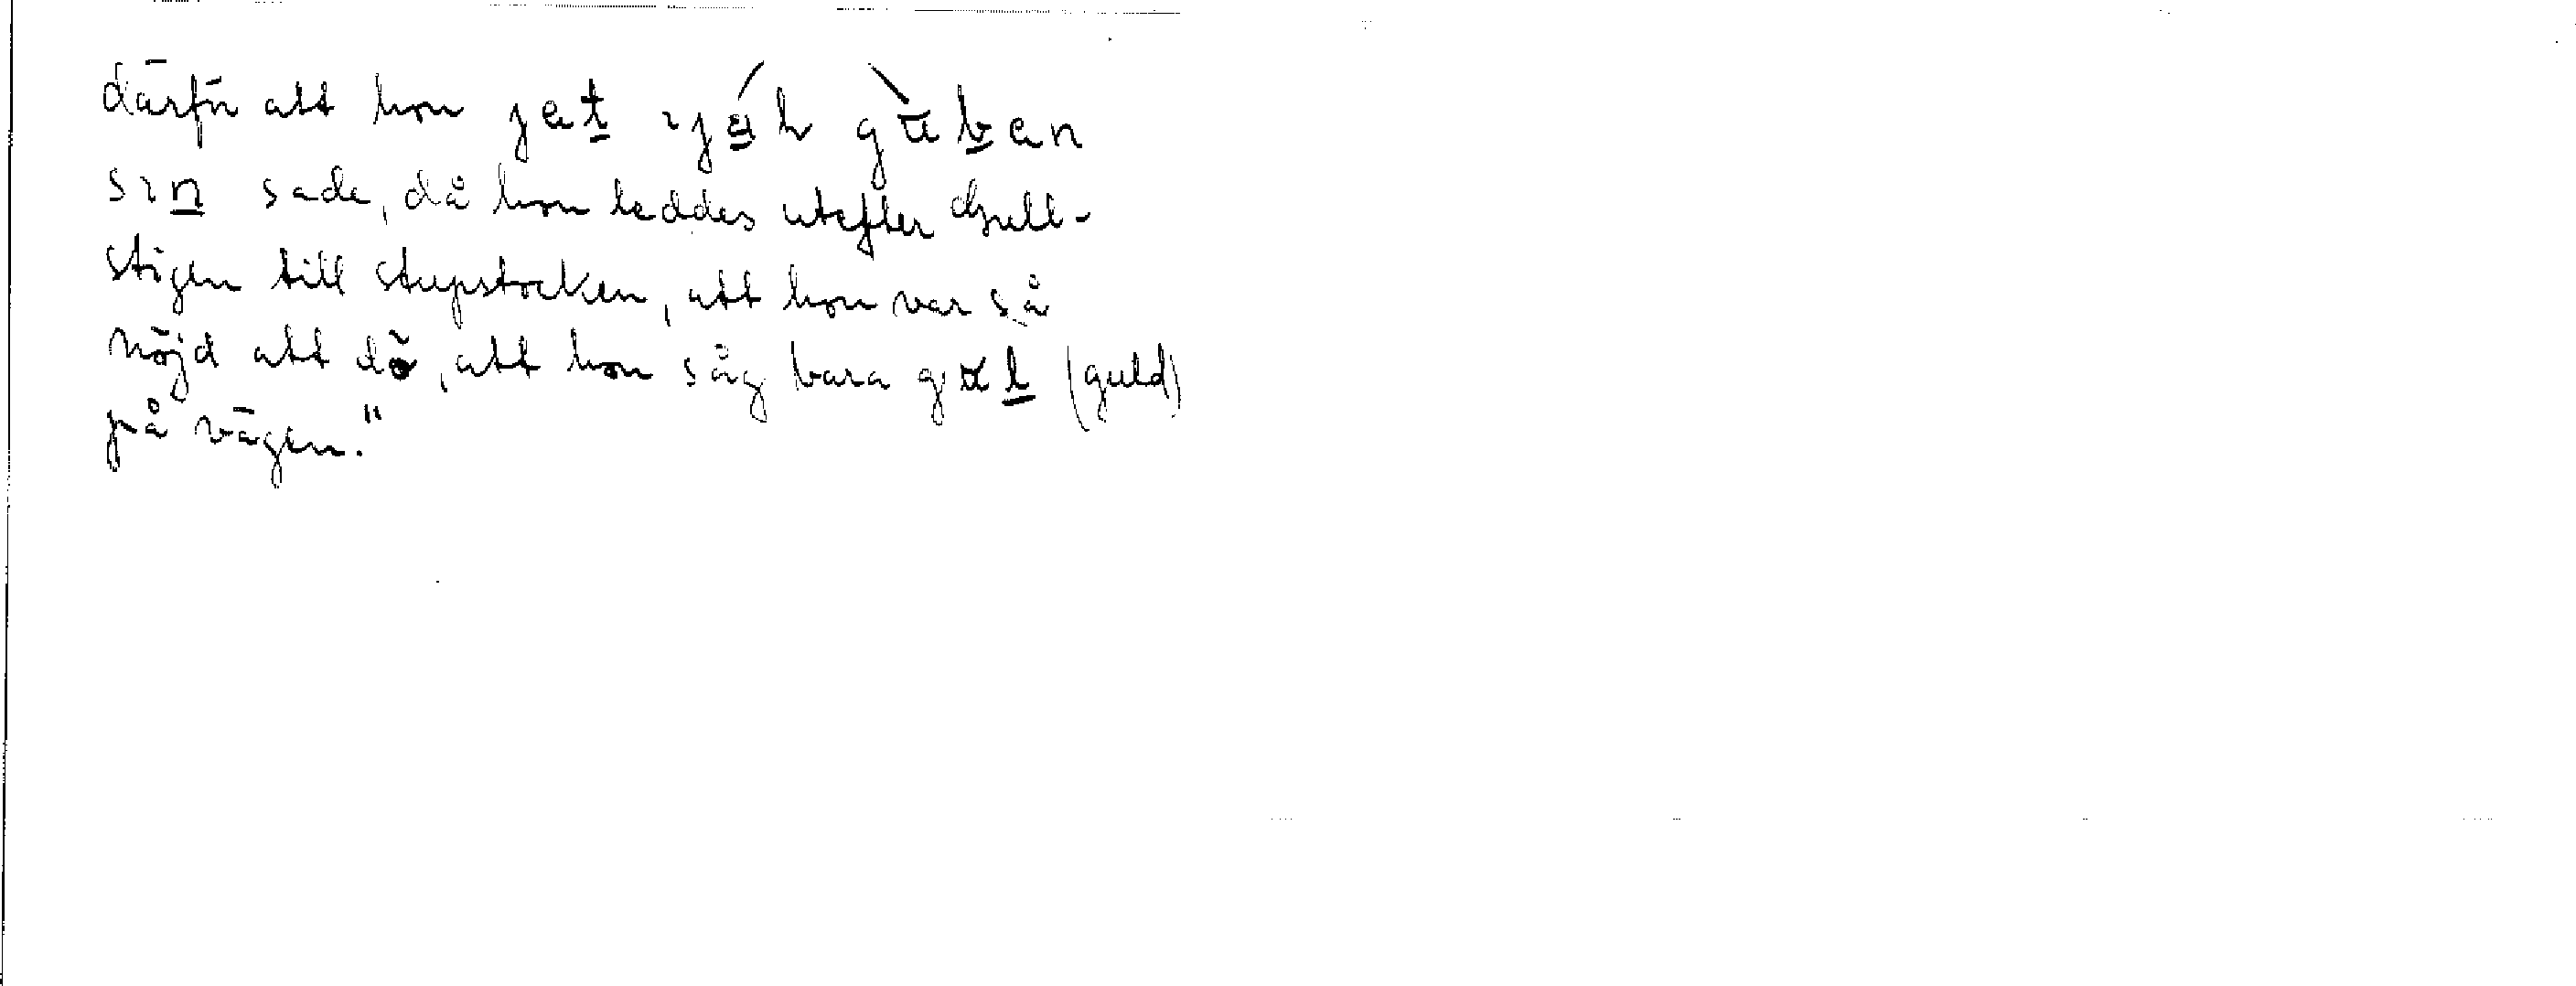 därför att hon jet ijäl gubben
sin sade, då hon leddes utefter Gull-
stigen till stupstocken, att hon var så
nöjd att dö, att hon såg bara gul (guld)
på vägen."